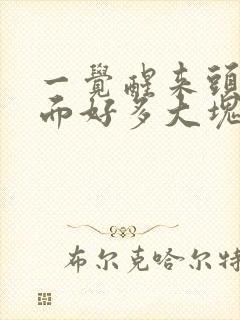 一覺醒来頭
而好多大塊
布尔克哈尔特